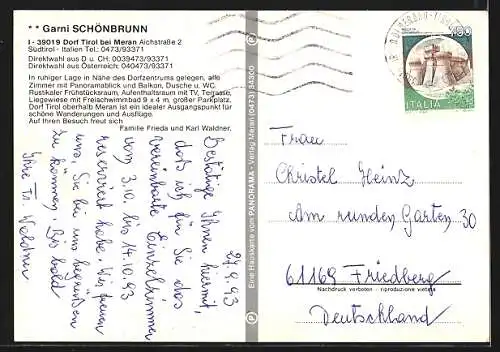 ** Garni SCHÖNBRUNN
I - 39019 Dorf Tirol bei Meran Aichstraße 2
Südtirol - Italien Tel.: 0473/93371
Direktwahl aus D u. CH: 0039473/93371
Direktwahl aus Österreich: 040473/93371
In ruhiger Lage in Nähe des Dorfzentrums gelegen, alle
Zimmer mit Panoramablick und Balkon, Dusche u. WC.
Rustikaler Frühstücksraum, Aufenthaltsraum mit TV, Terasse,
Liegewiese mit Freischwimmbad 9 x 4 m, großer Parkplatz.
Dorf Tirol oberhalb Meran ist ein idealer Ausgangspunkt für
schöne Wanderungen und Ausflüge.
Auf Ihren Besuch freut sich
Familie Frieda und Karl Waldner.
27.9.93
Bestätige Ihnen hiermit,
dass ich für Sie das
vereinbarte Einzelzimmer
vom 3.10. bis 14.10.93
reserviert habe. Wir freuen
uns, Sie bei uns begrüßen
zu können. Bis bald
Ihre Fr. Waldner
Eine Hauskarte vom PANORAMA - Verlag Meran (0473) 34300
ITALIA
Frau
Charlotte Heinz
Am runden Garten 30
61169 Friedberg
Nachdruck verboten - riproduzione vietata
Deutschland